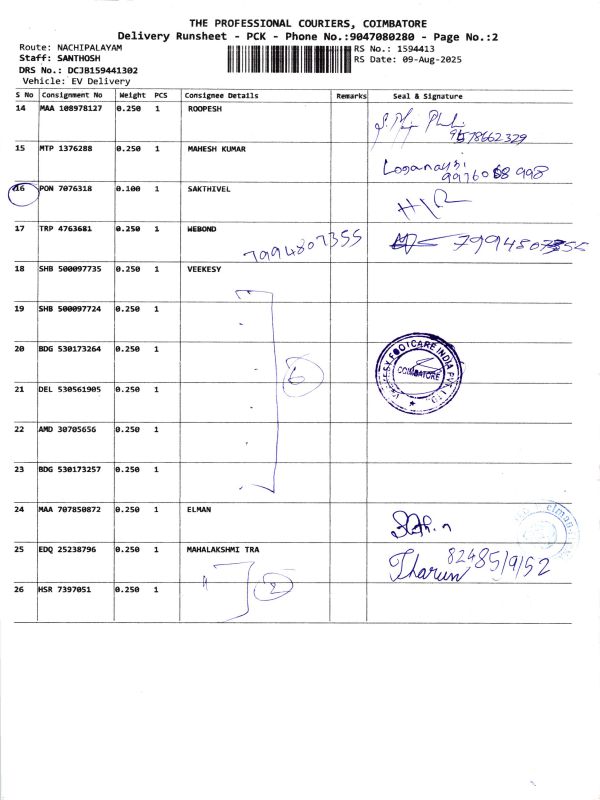 THE PROFESSIONAL COURIERS, COIMBATORE
Delivery Runsheet - PCK - Phone No.:9047080280 - Page No.:2
Route: NACHIPALAYAM RS No.: 1594413
Staff: SANTHOSH RS Date: 09-Aug-2025
DRS No.: DCJB159441302
Vehicle: EV Delivery
S No Consignment No Weight PCS Consignee Details Remarks Seal & Signature
14 MAA 108978127 0.250 1 ROOPESH
15 MTP 1376288 0.250 1 MAHESH KUMAR
16 PON 7076318 0.100 1 SAKTHIVEL
17 TRP 4763681 0.250 1 WEBOND
7994807355 7994807355
18 SHB 500097735 0.250 1 VEEKESY
19 SHB 500097724 0.250 1
20 BDG 530173264 0.250 1
6
COIMBATORE
21 DEL 530561905 0.250 1
22 AMD 30705656 0.250 1
23 BDG 530173257 0.250 1
24 MAA 707850872 0.250 1 ELMAN
25 EDQ 25238796 0.250 1 MAHALAKSHMI TRA
Tharun 82485/9/52
26 HSR 7397051 0.250 1
2